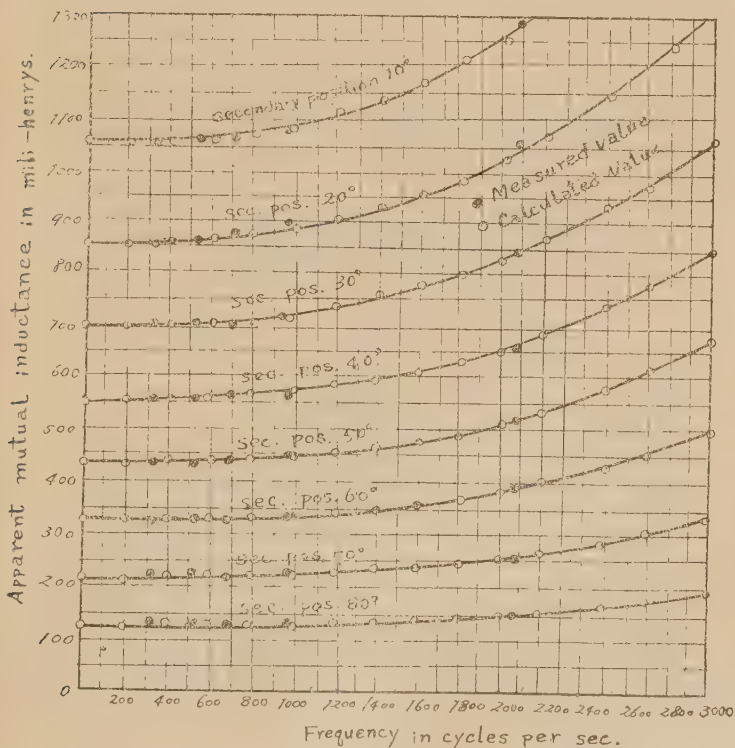 Apparent mutual inductance in mili-henrys.
1300
1200
1100
1000
900
800
700
600
500
400
300
200
100
0
Secondary position 10°
sec. pos. 20°
sec. pos. 30°
sec. pos. 40°
sec. pos. 50°
sec. pos. 60°
sec. pos. 70°
sec. pos. 80°
Measured value
Calculated value
200 400 600 800 1000 1200 1400 1600 1800 2000 2200 2400 2600 2800 3000
Frequency in cycles per sec.